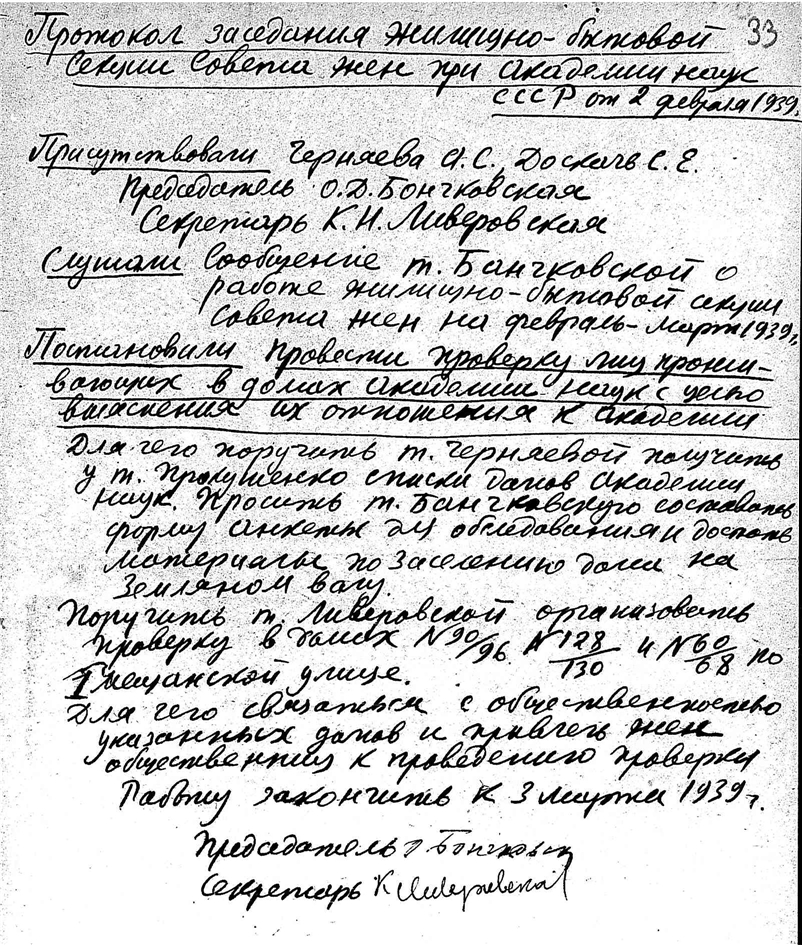 33
Протокол заседания жилищно-бытовой
секции Совета жен при Академии наук
СССР от 2 февраля 1939г.
Присутствовали Черняева А.С., Доскачь С.Е.
Председатель О.Д. Бончковская
Секретарь К.Н. Ливеровская
Слушали Сообщение т. Бончковской о
работе жилищно-бытовой секции
Совета жен на февраль-март 1939г.
Постановили провести проверку лиц прожи-
вающих в домах Академии наук с целью
выяснения их отношения к Академии
Для чего поручить т. Черняевой получить
у т. Прокушенко списки домов Академии
наук. Просить т. Бончковскую составить
форму анкеты для обследования и достать
материалы по заселению дома на
Земляном валу.
Поручить т. Ливеровской организовать
проверку в домах №90/96 №128/130 и №60/68 по
I Мещанской улице.
Для чего связаться с общественностью
указанных домов и привлечь жен
общественниц к проведению проверки
Работу закончить к 3 марта 1939г.
Председатель Бончковск
Секретарь К Ливеровская